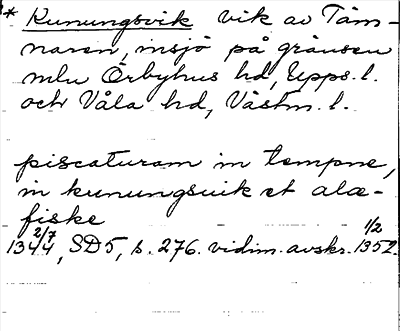 * Kunungsvik vik av Täm-
naren, insjö på gränsen
mln Örbyhus hd, Upps. l.
och Våla hd, Västm. l.
piscaturam in tempne,
in kunungsuik et alæ-
fiske
1344 2/7, SD5, s. 276. vidim. avskr. 1352 1/2.